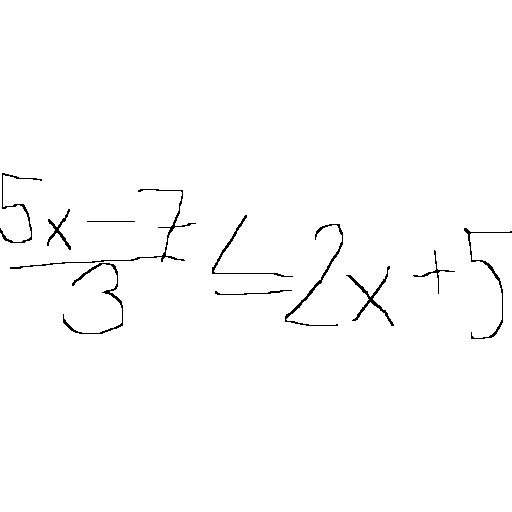 (5x - 7)/3 ≤ 2x + 5